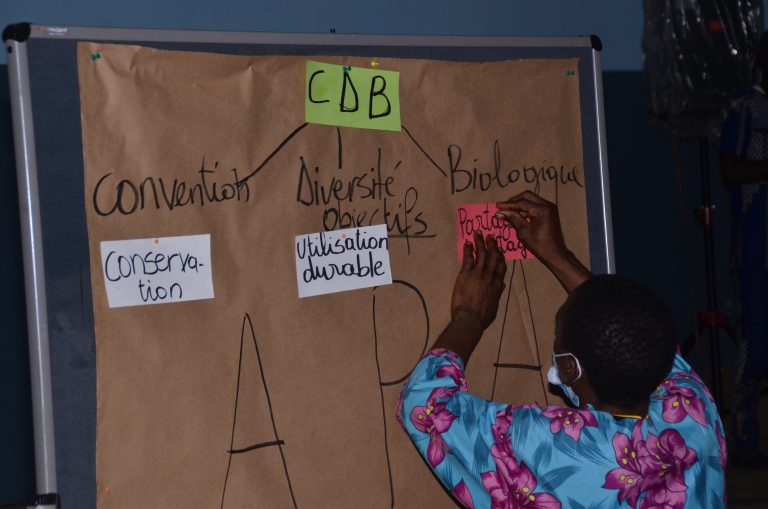 CDB
Convention Diversité Biologique
objectifs
Conserva-
tion
Utilisation
durable
APA